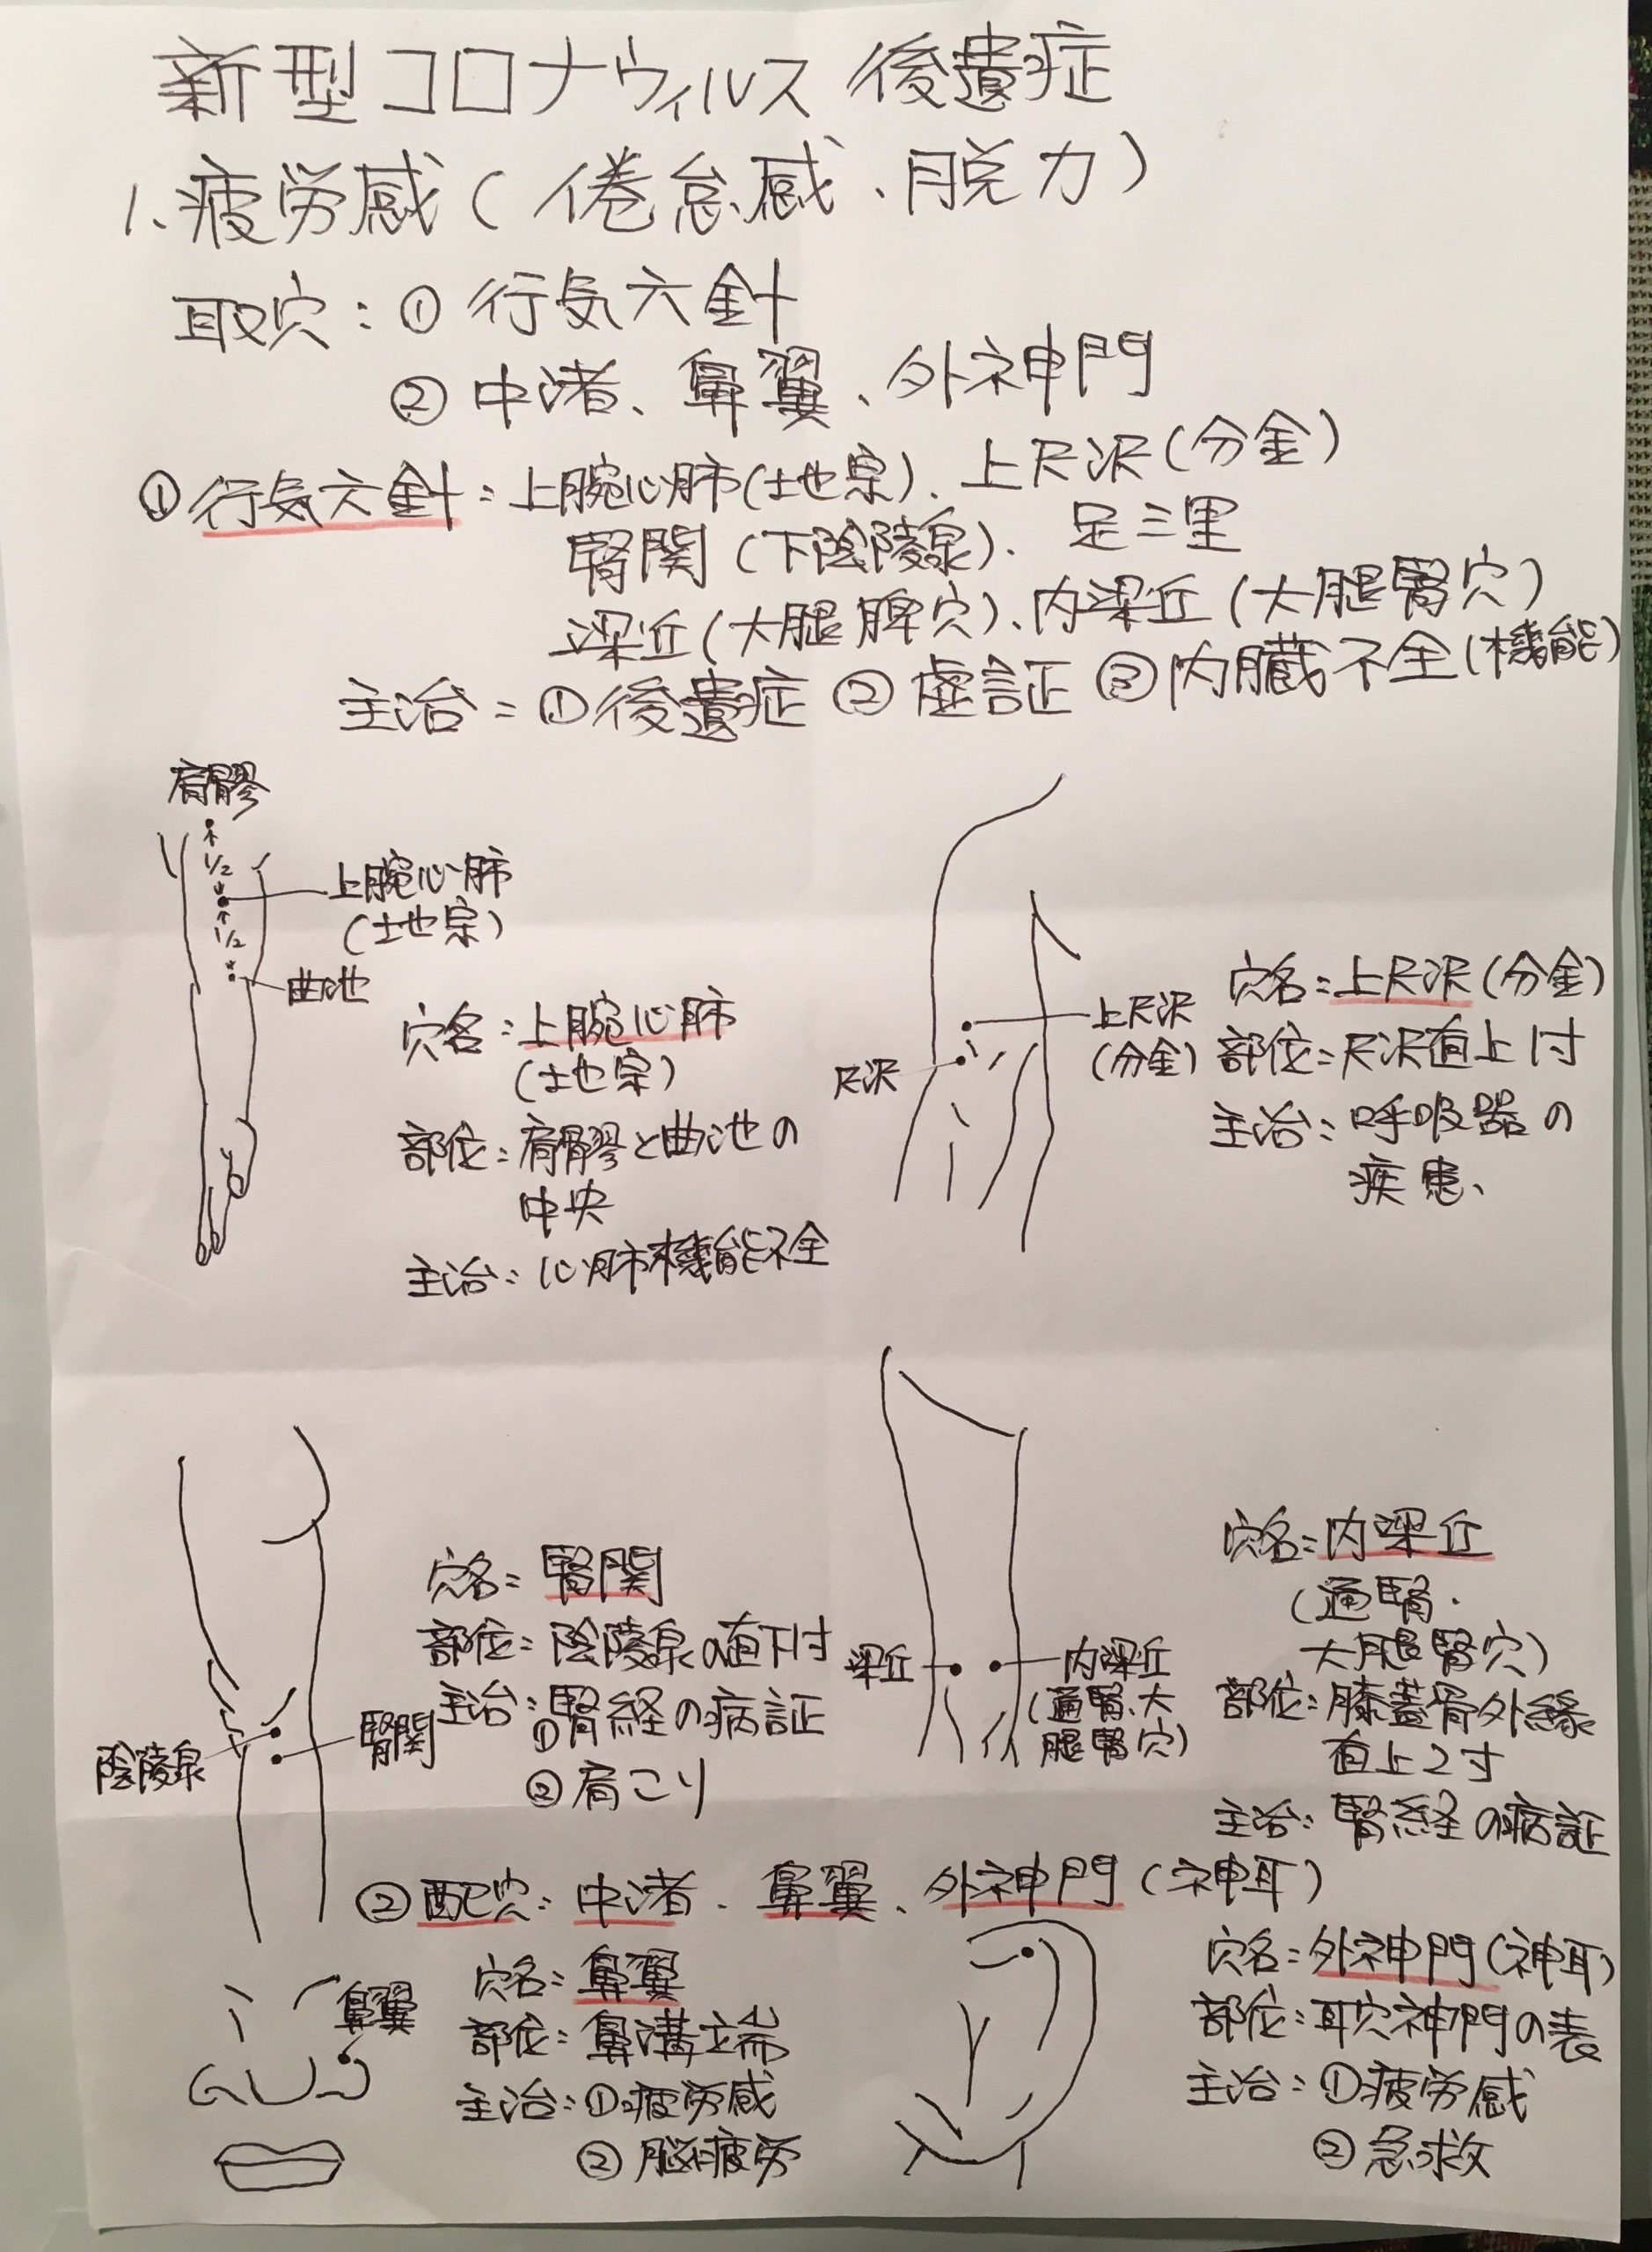 新型コロナウィルス 後遺症
1.疲労感(倦怠感、脱力)
取穴:① 行気六針
② 中渚、鼻翼、外神門
①行気六針=上腕心肺(土地宗)、上尺沢(分金)
腎関(下陰陵泉)、足三里
梁丘(大腿脾穴)、内梁丘(大腿腎穴)
主治=①後遺症 ②虚証 ③内臓不全(機能)
肩髎
1/2
上腕心肺
(土地宗)
1/2
曲池
穴名:上腕心肺
(土地宗)
部位:肩髎と曲池の
中央
主治:心肺機能不全
上尺沢
(分金)
尺沢
穴名:上尺沢(分金)
部位=尺沢直上1寸
主治:呼吸器の
疾患、
陰陵泉
腎関
穴名=腎関
部位=陰陵泉の直下1寸
主治:①腎経の病証
②肩こり
梁丘
内梁丘
(通腎、大
腿腎穴)
穴名=内梁丘
(通腎・
大腿腎穴)
部位:膝蓋骨外縁
直上2寸
主治:腎経の病証
②配穴:中渚、鼻翼、外神門(神耳)
鼻翼
穴名=鼻翼
部位=鼻溝端
主治:①疲労感
②脳疲労
穴名=外神門(神耳)
部位:耳穴神門の表
主治:①疲労感
②急救